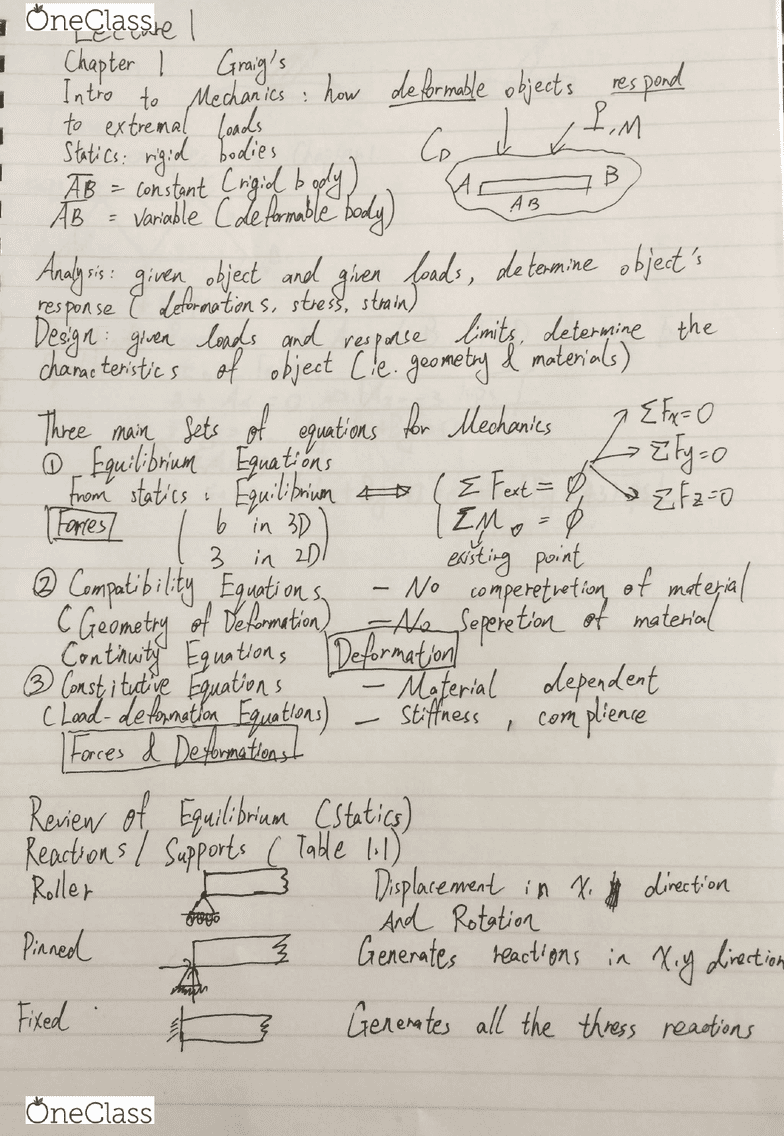 OneClass
Lecture 1
Chapter 1 Graig's
Intro to Mechanics : how deformable objects respond
to extremal loads
Statics: rigid bodies
P, M
A B
AB
AB = constant (rigid body)
AB = variable (deformable body)
Analysis: given object and given loads, determine object's
response (deformations, stress, strain)
Design: given loads and response limits, determine the
characteristics of object (i.e. geometry & materials)
Three main sets of equations for Mechanics
① Equilibrium Equations
From statics : Equilibrium ⟺ ( Σ Fext = ∅
ΣFx=0
ΣFy=0
ΣFz=0
Forces ( 6 in 3D )
( ΣMo = ∅
3 in 2D
existing point
② Compatibility Equations - No comperetretion of material
(Geometry of Deformation) - No Seperetion of material
Continuity Equations Deformation
③ Constitutive Equations - Material dependent
(Load-deformation Equations) - Stiffness, complience
Forces & Deformations
Review of Equilibrium (Statics)
Reactions / Supports ( Table 1.1)
Roller Displacement in x, direction
And Rotation
Pinned Generates reactions in x,y direction
Fixed Generates all the thress reactions
OneClass